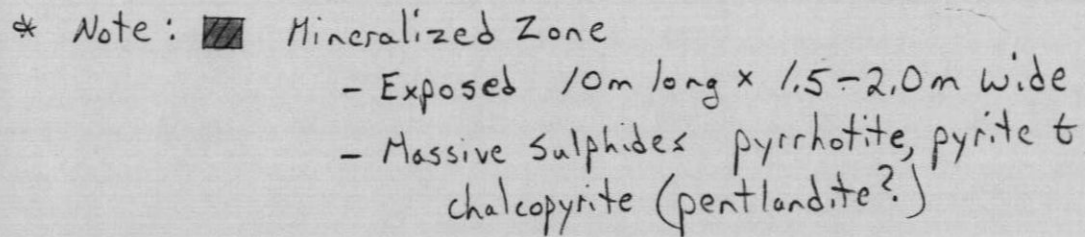 * Note: Mineralized Zone
- Exposed 10m long x 1.5-2.0m wide
- Massive Sulphides pyrrhotite, pyrite &
chalcopyrite (pentlandite?)